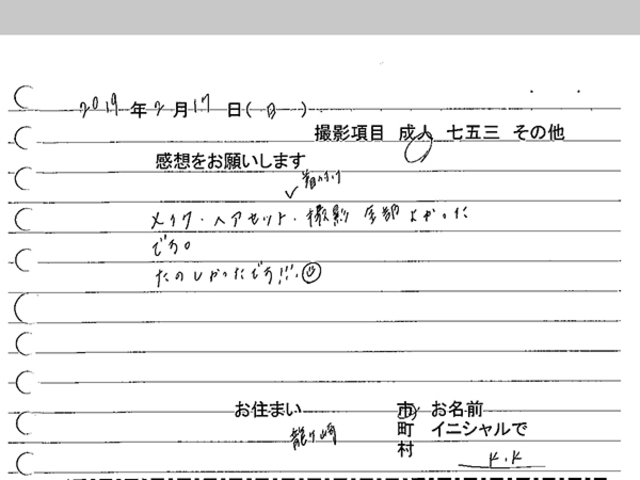 2019年2月17日(日)
撮影項目 成人 七五三 その他
感想をお願いします
着つけ
メイク・ヘアセット・撮影 全部よかった
です。
たのしかったです!!!
お住まい 市 お名前
龍ヶ崎 町 イニシャルで
村 K.K